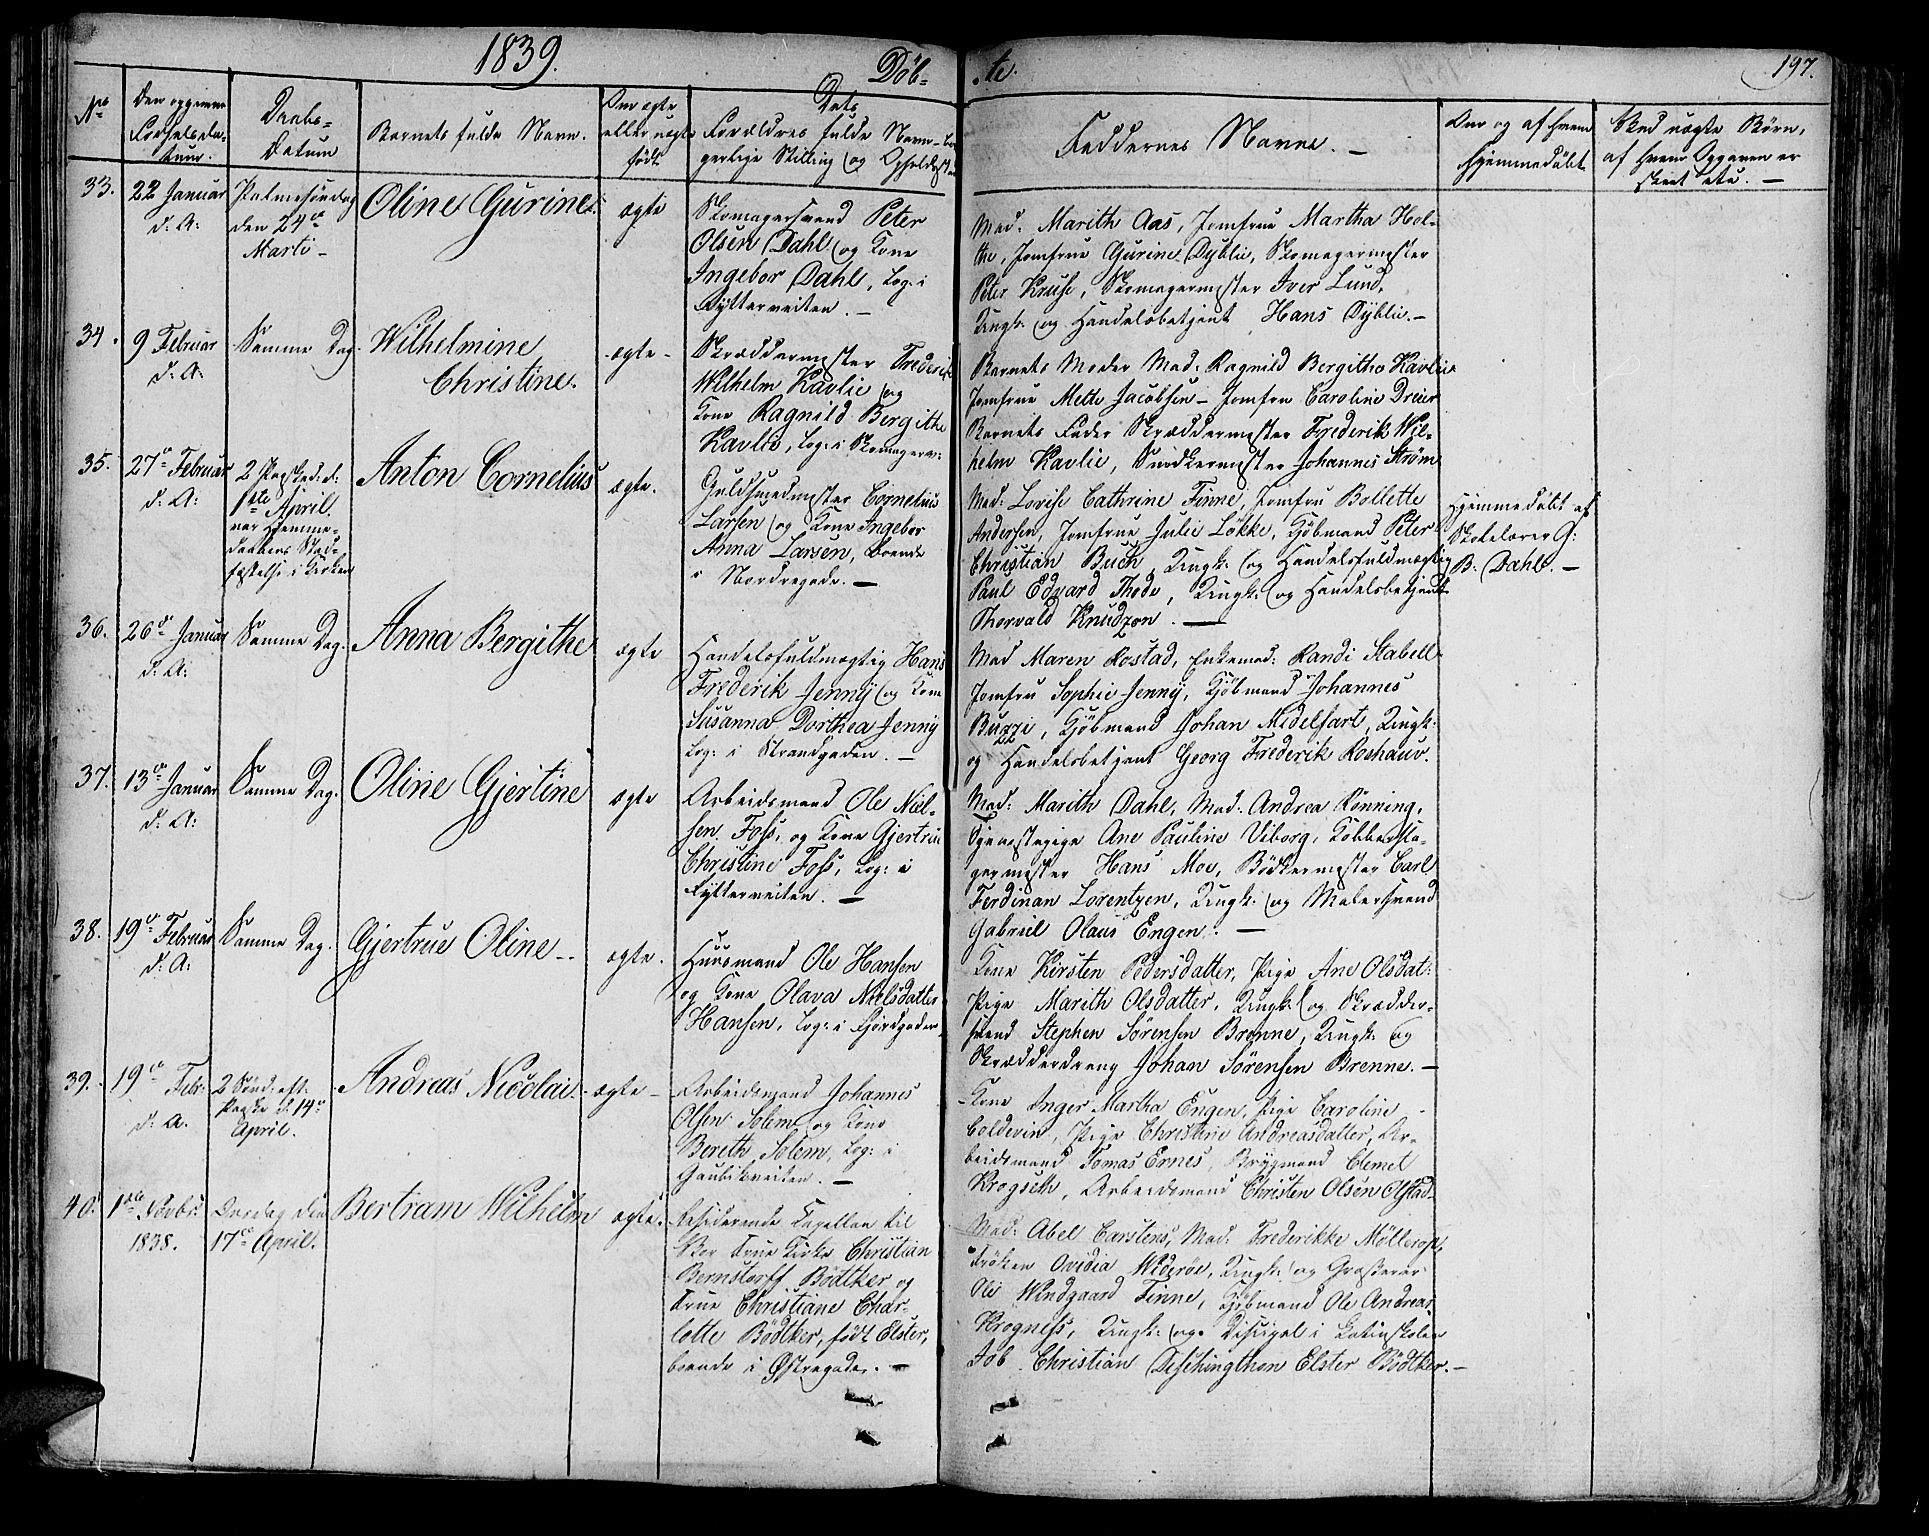 1839.
Döb-
te.
197.
No
Den opgivne
Fødselsda-
tum.
Daabs-
Datum
Barnets fulde Navn.
Om ægte
eller uægte
født
Dets
Forældres fulde Navn, bor-
gerlige Stilling og Opholdsst
Faddernes Navne. -
Om og af hvem
hjemmedöbt
Sted uægte Börn,
af hvem Opgaven er
skeet etc. -
33.
22 Januar
d: A:
Palmesöndag
den 24de
Marti -
Oline Gurine.
ægte
Skomagersvend Peter
Olsen Dahl og Kone
Ingebor Dahl, Log: i
Rytterveiten. -
Mad: Marith Aas, Jomfrue Martha Hol-
the, Jomfrue Gurine Dyblie, Skomagermester
Peter Kruse, Skomagermester Iver Lund,
Ungk: og Handelsbetjent Hans Dyblie. -
34.
9 Februar
d: A:
Samme Dag.
Wilhelmine
Christine.
ægte -
Skræddermester Frederik
Wilhelm Kavlie og
Kone Ragnild Bergithe
Kavlie, Log: i Skomagerv:
Barnets Moder Mad: Ragnild Bergitha Kavlie
Jomfrue Mette Jacobsen - Jomfru Caroline Dreier
Barnets Fader Skræddermester Frederik Wil-
helm Kavlie, Snidkermester Johannes Ström
35.
27de Februar
d: A:
2 Paasked: d:
1ste April.
var Hjemme-
daabens Stad-
fæstelse i Kirken
Anton Cornelius
ægte.
Guldsmedmester Cornelius
Larsen og Kone Ingebor
Anna Larsen, boende
i Nordregade. -
Mad: Lovise Cathrine Finne, Jomfru Bollette
Andersen, Jomfrue Julie Lökke, Kjöbmand Peter
Christian Buch, Ungk: og Handelsfuldmægtig
Paul Edvard Thode, Ungk: og Handelsbetjent
Thorvald Knudzon. -
Hjemmedöbt af
Skolelærer G:
B: Dahl. -
36.
26de Januar
d: A:
Samme Dag.
Anna Bergithe
ægte
Handelsfuldmægtig Hans
Frederik Jenny og Kone
Susanna Dorthea Jenny
Log: i Strandgaden. -
Mad Maren Rostad, Enkemad: Randi Stabell
Jomfru Sophie Jenny, Kjöbmand Johannes
Buzzi, Kjöbmand Johan Midelfart, Ungk:
og Handelsbetjent Georg Frederik Roshauv.
37.
13de Januar
d: A:
Samme Dag.
Oline Gjertine
ægte
Arbeidsmand Ole Niel-
sen Foss, og Kone Gjertrue
Christine Foss, Log: i
Rytterveiten. -
Mad: Marith Dahl, Mad: Andrea Rönning,
Tjenestepige Ane Pauline Viborg, Kobbersla-
germester Hans Moe, Bödkermester Carl
Ferdinan Lorentzen, Ungk: og Malersvend
Gabriel Olaus Engen. -
38.
19de Februar
d: A:
Samme Dag.
Gjertrue Oline -
ægte.
Huusmand Ole Hansen
og Kone Olava Nielsdatter
Hansen, Log: i Fjordgaden
Kone Kirsten Pedersdatter, Pige Ane Olsdat:
Pige Marith Olsdatter, Ungk: og Skrædder-
svend Stephen Sörensen Brenne, Ungk: og
Skrædderdreng Johan Sörensen Brenne. -
39.
19de Febr.
d: A.
2 Sönd: eft.
Paaske d. 14de
April.
Andreas Nicolai.
ægte -
Arbeidsmand Johannes
Olsen Solem og Kone
Bereth Solem, Log: i
Gaubækveiten. -
Kone Inger Martha Engen, Pige Caroline
Coldevin, Pige Christine Andreasdatter, Ar-
beidsmand Tomas Ernes, Brygmand Clemet
Krogseth, Arbeidsmand Christen Olsen Ofstad -
40.
1ste Novbr:
1838.
Onsdag den
17de April.
Bertram Wilhelm
ægte.
Residerende Capellan til
Vor Frue Kirke Christian
Bernstorff Bödtker og
Frue Christiane Char-
lotte Bödtker, født Elster,
boende i Østregade. -
Mad: Abel Carstens, Mad: Frederikke Möllerop,
Fröken Ovidia Wideröe, Ungk: og Grosserer
Ole Windgaard Finne, Kjöbmand Ole Andreas
Krogness, Ungk: og Discipel i Latinskolen
Job Christian Dischingthon Elster Bödtker. -